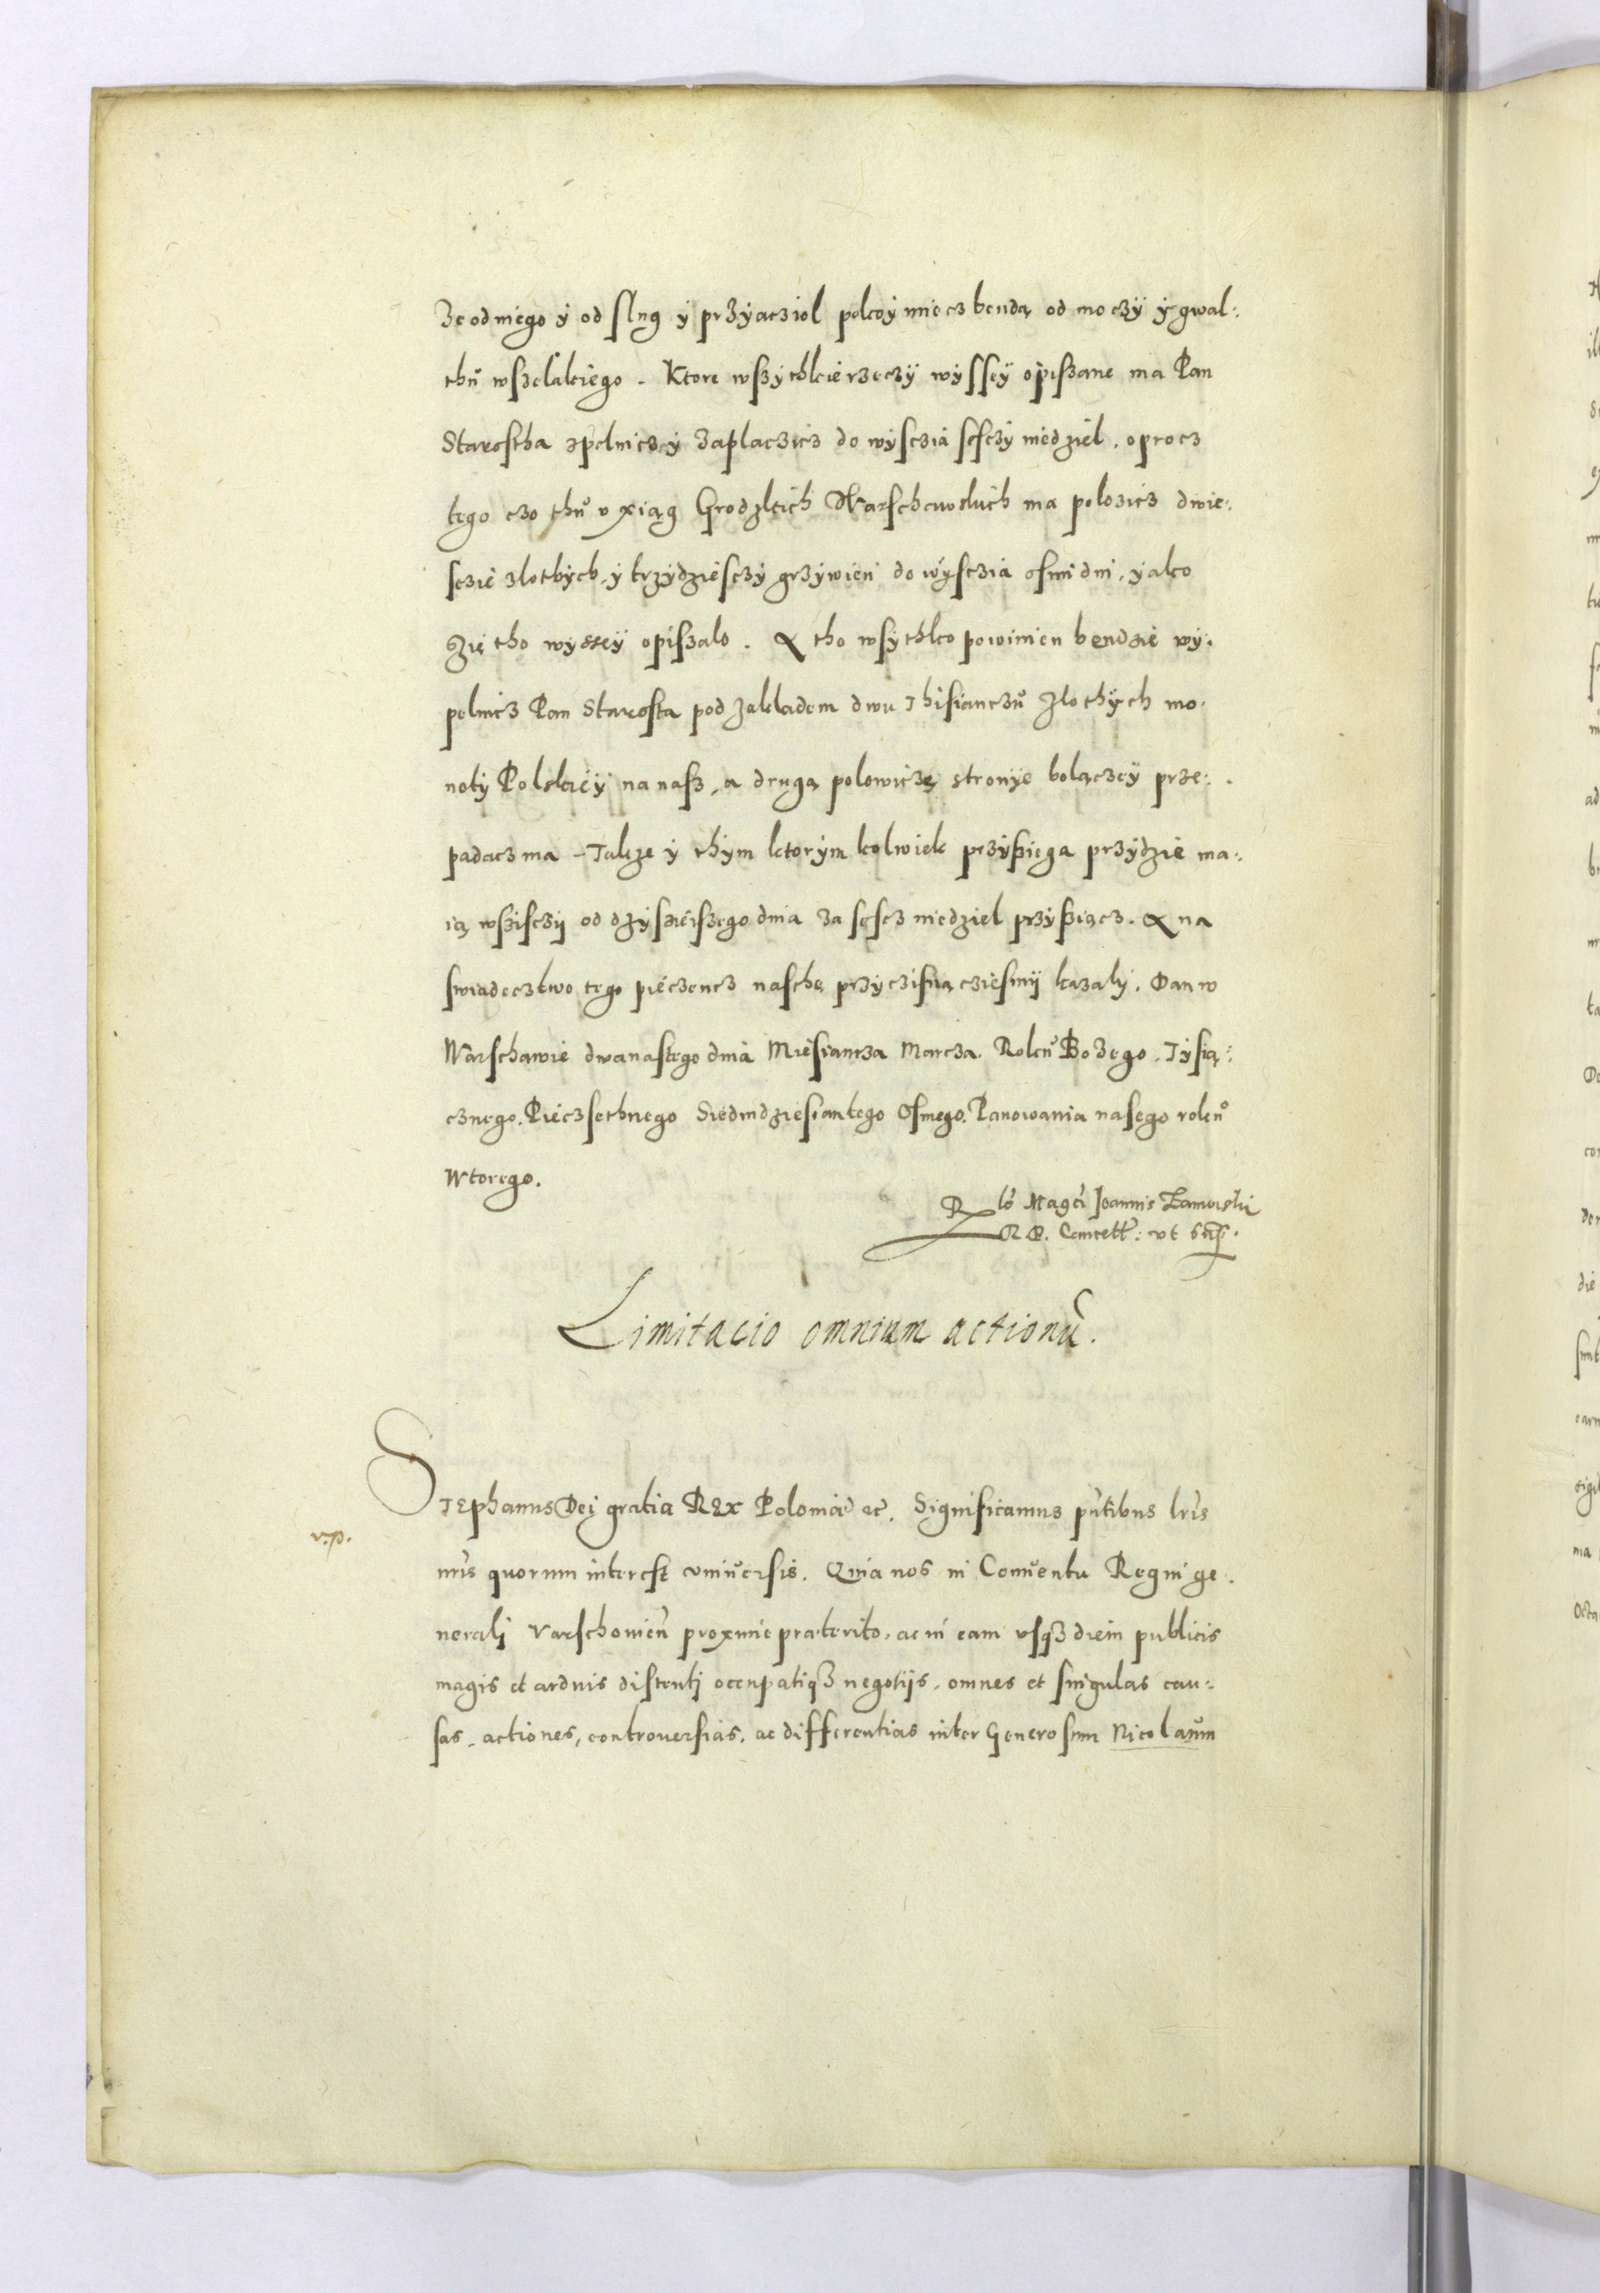 Ze od niego ÿ od slug ÿ przÿacziol pokoÿ miecz benda̧ od moczÿ ÿ gwal:
thu wszelakiego. Ktore wszÿthkie rzeczÿ wÿsseÿ opiszane ma Pan
Starostha zpelniczÿ zaplaczicz do wÿsczia sesczÿ niedziel, oprocz
tego czo thu v xiąg Grodzkich Warschewskich ma polozicz dwie:
sczie zlothÿch, ÿ trzÿdziesczÿ grzÿwien do wÿsczia osmi dni, ÿako
zię tho wÿsseÿ opiszalo. A tho wsÿthko powinien bendzie wÿ:
pelnicz Pan Starosta pod zakladem dwu Thisianczu Zlothÿch mo:
netÿ Polskieÿ na nasz, a drugą polowiczę stronÿe bolączeÿ prze:
padacz ma. Takze ÿ thÿm ktorÿm kolwiek przÿsięga przÿdzie ma:
ią wszisczÿ od dzÿsieiszego dnia za sesc niedziel przÿsiącz. A na
swiadecztwo tego pieczencz naschę przÿczisnącziesmÿ kazalÿ. Dan w
Warschawie dwanastego dnia Miesiancza Marcza. Roku Bozego. Tÿsią:
cznego. Pieczsethnego Siedmdziesiantego Osmego. Panowania nasego roku
Wtorego.
Rlo Magci Joannis Zamoiski
R. P. Cancell: vt sup.
Limitacio omnium actionu.
Stephanus Dei gratia Rex Poloniæ etc. Significamus pntibus lris
v.p.
nris quorum interest vniuersis. Quia nos in Conuentu Regni ge:
nerali Varschouien proxime præterito, ac in eam vsq diem publicis
magis et arduis distenti occupatiq negotijs, omnes et singulas cau:
sas, actiones, controuersias, ac differentias inter Generosum Nicolaum